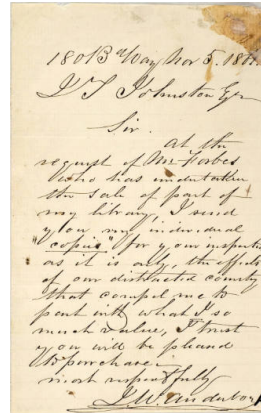 180 B Way Nov 5. 18
J T Johnston Esqr
Sir.
at the
request of Mr Forbes
who has undertaken
the sale of part of
my library, I send
you my individual
"copies" for your inspection
as it is only, the effects
of our distracted country
that compel me to
part with what I so
much value, I trust
you will be pleased
to purchase.
most respectfully